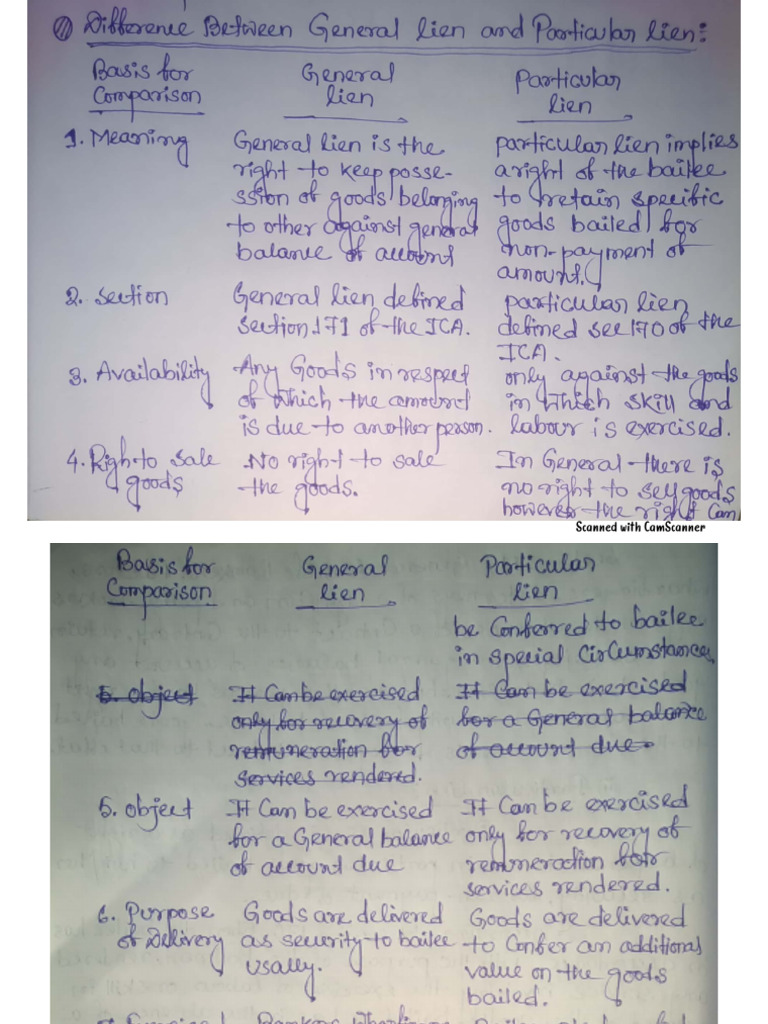 ⑪ Difference Between General lien and Particular lien:
Basis for General Particular
Comparison lien lien
1. Meaning General lien is the particular lien implies
right to keep posse- a right of the bailee
ssion of goods belonging to retain specific
to other against general goods bailed for
balance of account non-payment of
amount.
2. Section General lien defined particular lien
section 171 of the ICA. defined sec 170 of the
ICA.
3. Availability Any Goods in respect only against the goods
of which the amount in which skill and
is due to another person. labour is exercised.
4. Righ to sale No right to sale In General there is
goods the goods. no right to sell goods
however the right Can
Scanned with CamScanner
Basis for General Particular
Comparison lien lien
be Conferred to bailee
in special Circumstances
5. object It Can be exercised It Can be exercised
only for recovery of for a General balance
remuneration for of account due
services rendered.
5. object It Can be exercised It Can be exercised
for a General balance only for recovery of
of account due remuneration for
services rendered.
6. Purpose Goods are delivered Goods are delivered
of Delivery as security to bailee to Confer an additional
usally. value on the goods
bailed.